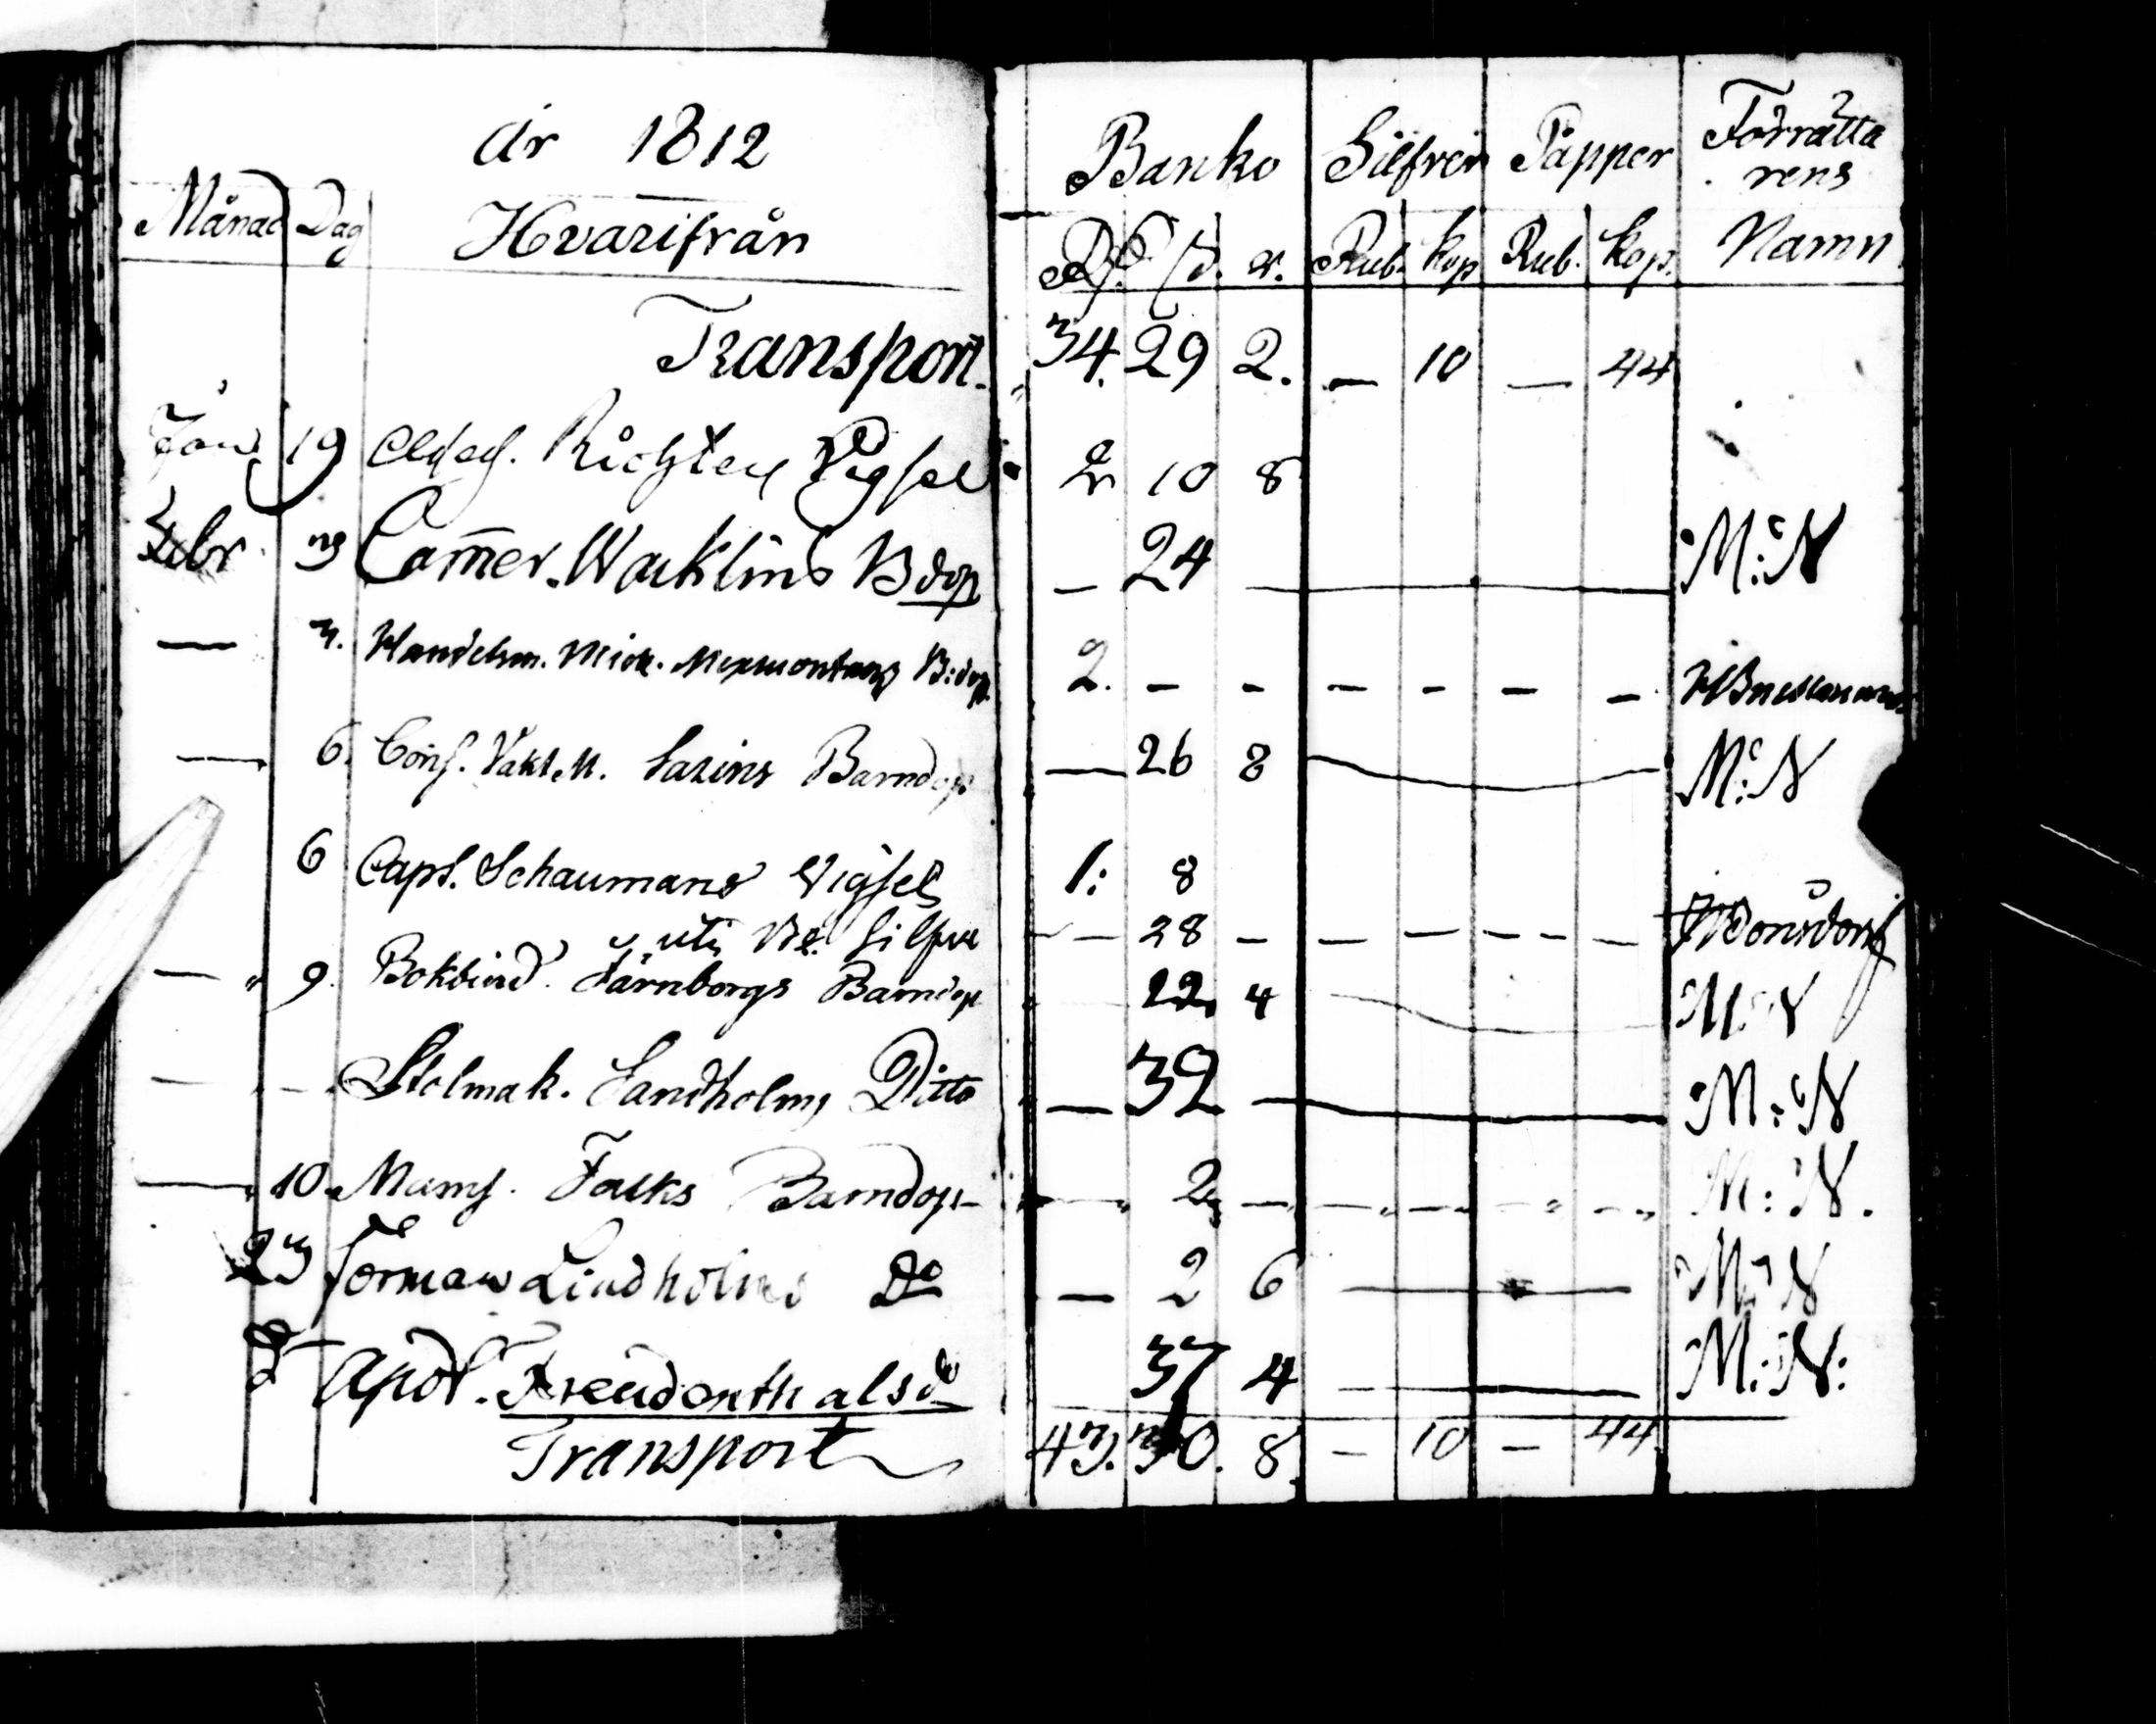 År 1812
Månad Dag Hvarifrån
Banko Silfver Papper Förrätta
rens
Rd. s. r. Rub. kop Rub. kop. Namn
Transport. 34. 29 2. — 10 — 44
Jan. 19 Richters Vigsel 2 10 8
Febr. 3 Camer. Wacklins Bdop — 24 — M:N
— 3. Handelsm. Mich. B:dop. 2. - - - - - -
— 6. Vaktm. Barndop — 26 8 — M:N
6 Capt. Schaumans Vigsel 1: 8
uti Silfver — 28 - - - - - -
— " 9. Bokbind. Järnborgs Barndop 22. 4 — M:N
— — Stolmak. Sandholms Ditto — 32 — M:N
— 10. Mams. Falks Barndop — — 2 — — — — — M:N.
23 Forman Lindholms Do — 2 6 — M:N
do Apot. Freudenthals do 37 4 — M:N:
Transport 43. 30. 8. — 10 — 44